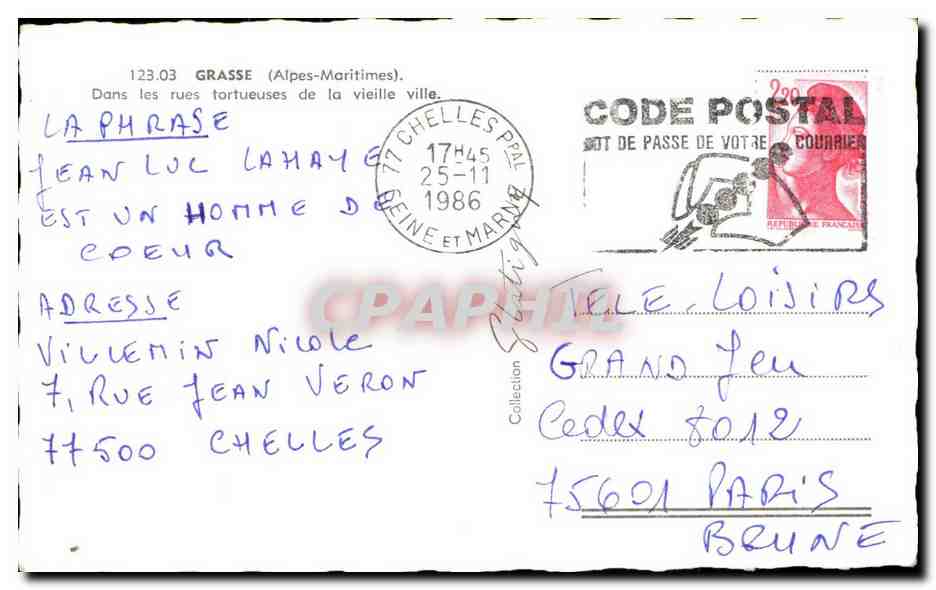 123.03 GRASSE (Alpes-Maritimes).
Dans les rues tortueuses de la vieille ville.
LA PHRASE
JEAN LUC LAHAYE
EST UN HOMME DE
COEUR
ADRESSE
VILLEMIN NICOLE
7, RUE JEAN VERON
77500 CHELLES
77 CHELLES PPAL
17H45
25-11
1986
SEINE ET MARNE
CODE POSTAL
MOT DE PASSE DE VOTRE COURRIER
2,20
REPUBLIQUE FRANCAISE
Collection
CPAPHIL
TELE-LOISIRS
GRAND Jeu
Cedex 8012
75601 PARIS
BRUNE